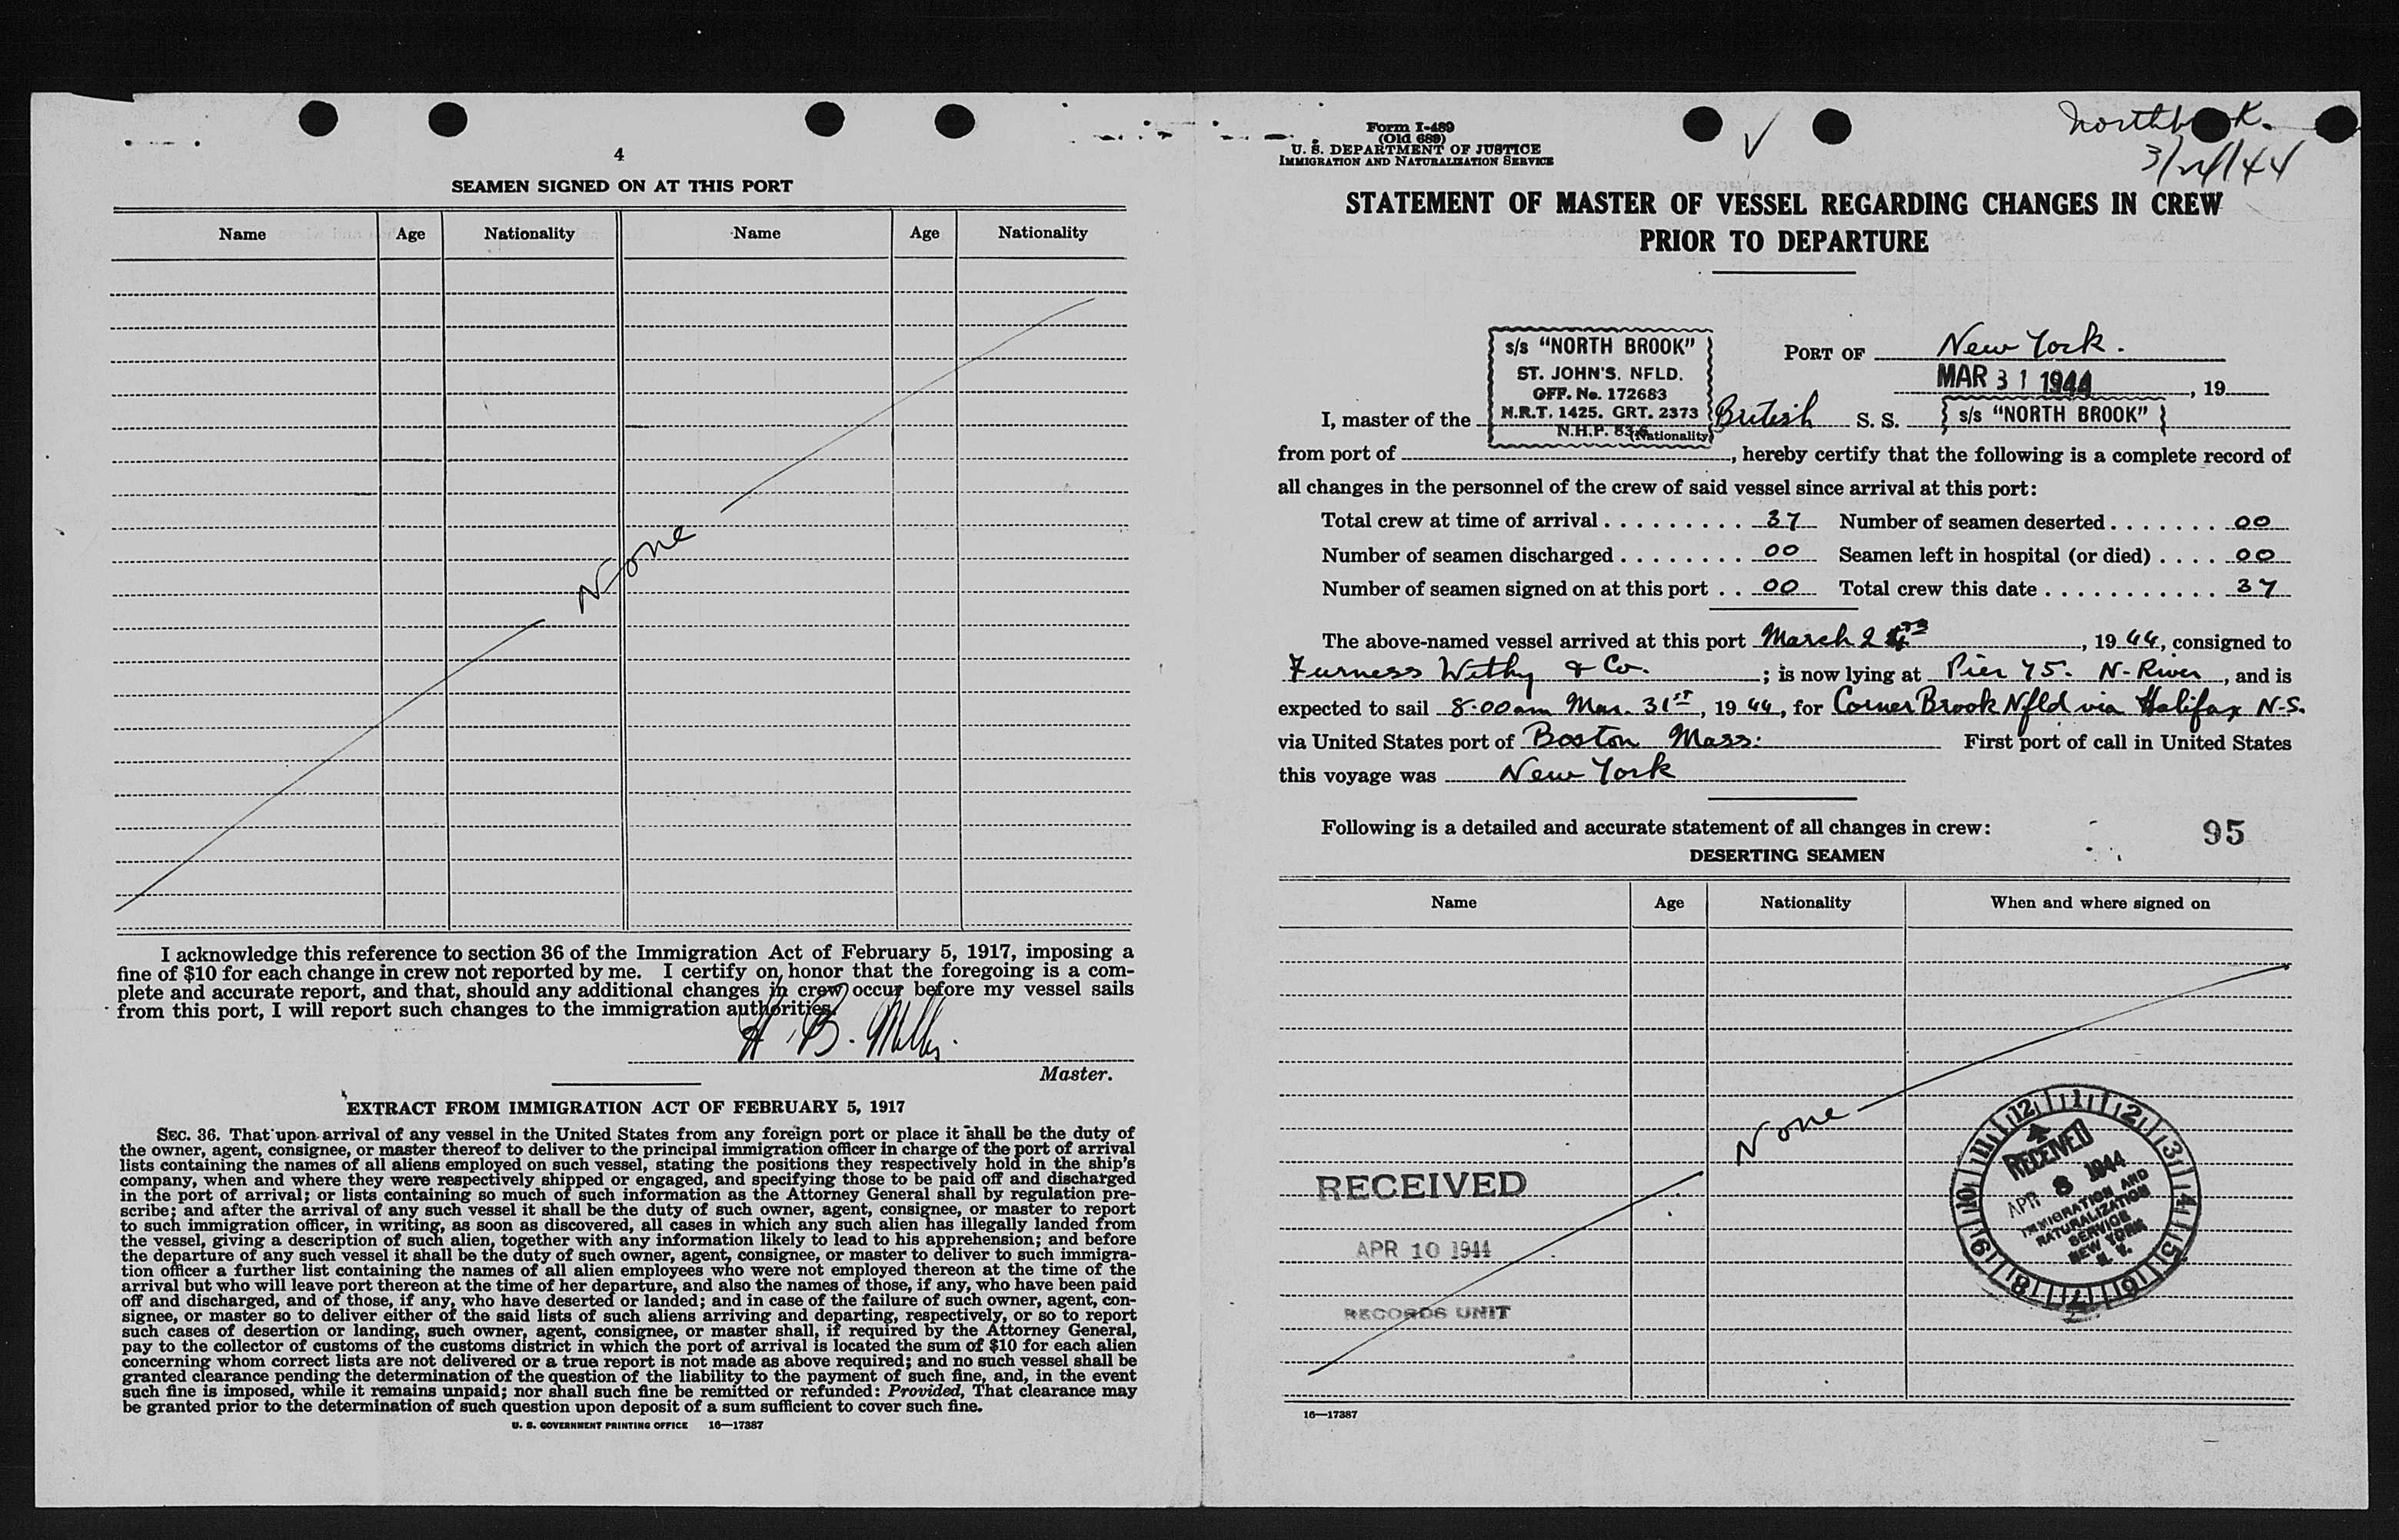 4
SEAMEN SIGNED ON AT THIS PORT
Name Age Nationality Name Age Nationality
None
I acknowledge this reference to section 36 of the Immigration Act of February 5, 1917, imposing a
fine of $10 for each change in crew not reported by me. I certify on honor that the foregoing is a com-
plete and accurate report, and that, should any additional changes in crew occur before my vessel sails
from this port, I will report such changes to the immigration authorities.
H. B. Miller.
Master.
EXTRACT FROM IMMIGRATION ACT OF FEBRUARY 5, 1917
SEC. 36. That upon arrival of any vessel in the United States from any foreign port or place it shall be the duty of
the owner, agent, consignee, or master thereof to deliver to the principal immigration officer in charge of the port of arrival
lists containing the names of all aliens employed on such vessel, stating the positions they respectively hold in the ship's
company, when and where they were respectively shipped or engaged, and specifying those to be paid off and discharged
in the port of arrival; or lists containing so much of such information as the Attorney General shall by regulation pre-
scribe; and after the arrival of any such vessel it shall be the duty of such owner, agent, consignee, or master to report
to such immigration officer, in writing, as soon as discovered, all cases in which any such alien has illegally landed from
the vessel, giving a description of such alien, together with any information likely to lead to his apprehension; and before
the departure of any such vessel it shall be the duty of such owner, agent, consignee, or master to deliver to such immigra-
tion officer a further list containing the names of all alien employees who were not employed thereon at the time of the
arrival but who will leave port thereon at the time of her departure, and also the names of those, if any, who have been paid
off and discharged, and of those, if any, who have deserted or landed; and in case of the failure of such owner, agent, con-
signee, or master so to deliver either of the said lists of such aliens arriving and departing, respectively, or so to report
such cases of desertion or landing, such owner, agent, consignee, or master shall, if required by the Attorney General,
pay to the collector of customs of the customs district in which the port of arrival is located the sum of $10 for each alien
concerning whom correct lists are not delivered or a true report is not made as above required; and no such vessel shall be
granted clearance pending the determination of the question of the liability to the payment of such fine, and, in the event
such fine is imposed, while it remains unpaid; nor shall such fine be remitted or refunded: Provided, That clearance may
be granted prior to the determination of such question upon deposit of a sum sufficient to cover such fine.
U. S. GOVERNMENT PRINTING OFFICE 16—17387
Form I-489
(Old 689)
U. S. DEPARTMENT OF JUSTICE
IMMIGRATION AND NATURALIZATION SERVICE
3/24/44
STATEMENT OF MASTER OF VESSEL REGARDING CHANGES IN CREW
PRIOR TO DEPARTURE
s/s "NORTH BROOK"
ST. JOHN'S. NFLD.
OFF. No. 172683
N.R.T. 1425. GRT. 2373
N.H.P. 83.6
PORT OF New York.
MAR 31 1944, 19
I, master of the British S. S. s/s "NORTH BROOK"
(Nationality)
from port of , hereby certify that the following is a complete record of
all changes in the personnel of the crew of said vessel since arrival at this port:
Total crew at time of arrival . . . . . . . . . . 37 Number of seamen deserted . . . . . . . 00
Number of seamen discharged . . . . . . . . 00 Seamen left in hospital (or died) . . . . 00
Number of seamen signed on at this port . . 00 Total crew this date . . . . . . . . . . . . 37
The above-named vessel arrived at this port March 24th, 1944, consigned to
Furness Withy & Co. ; is now lying at Pier 75. N-River, and is
expected to sail 8.00am Mar. 31st, 1944, for Corner Brook Nfld via Halifax N.S.
via United States port of Boston Mass: First port of call in United States
this voyage was New York
Following is a detailed and accurate statement of all changes in crew:
95
DESERTING SEAMEN
Name Age Nationality When and where signed on
None
RECEIVED
APR 10 1944
RECORDS UNIT
12 1 2 3 4 5 6 7 8 9 10 11
RECEIVED
APR 8 1944
IMMIGRATION AND
NATURALIZATION
SERVICE
NEW YORK
N. Y.
16—17387